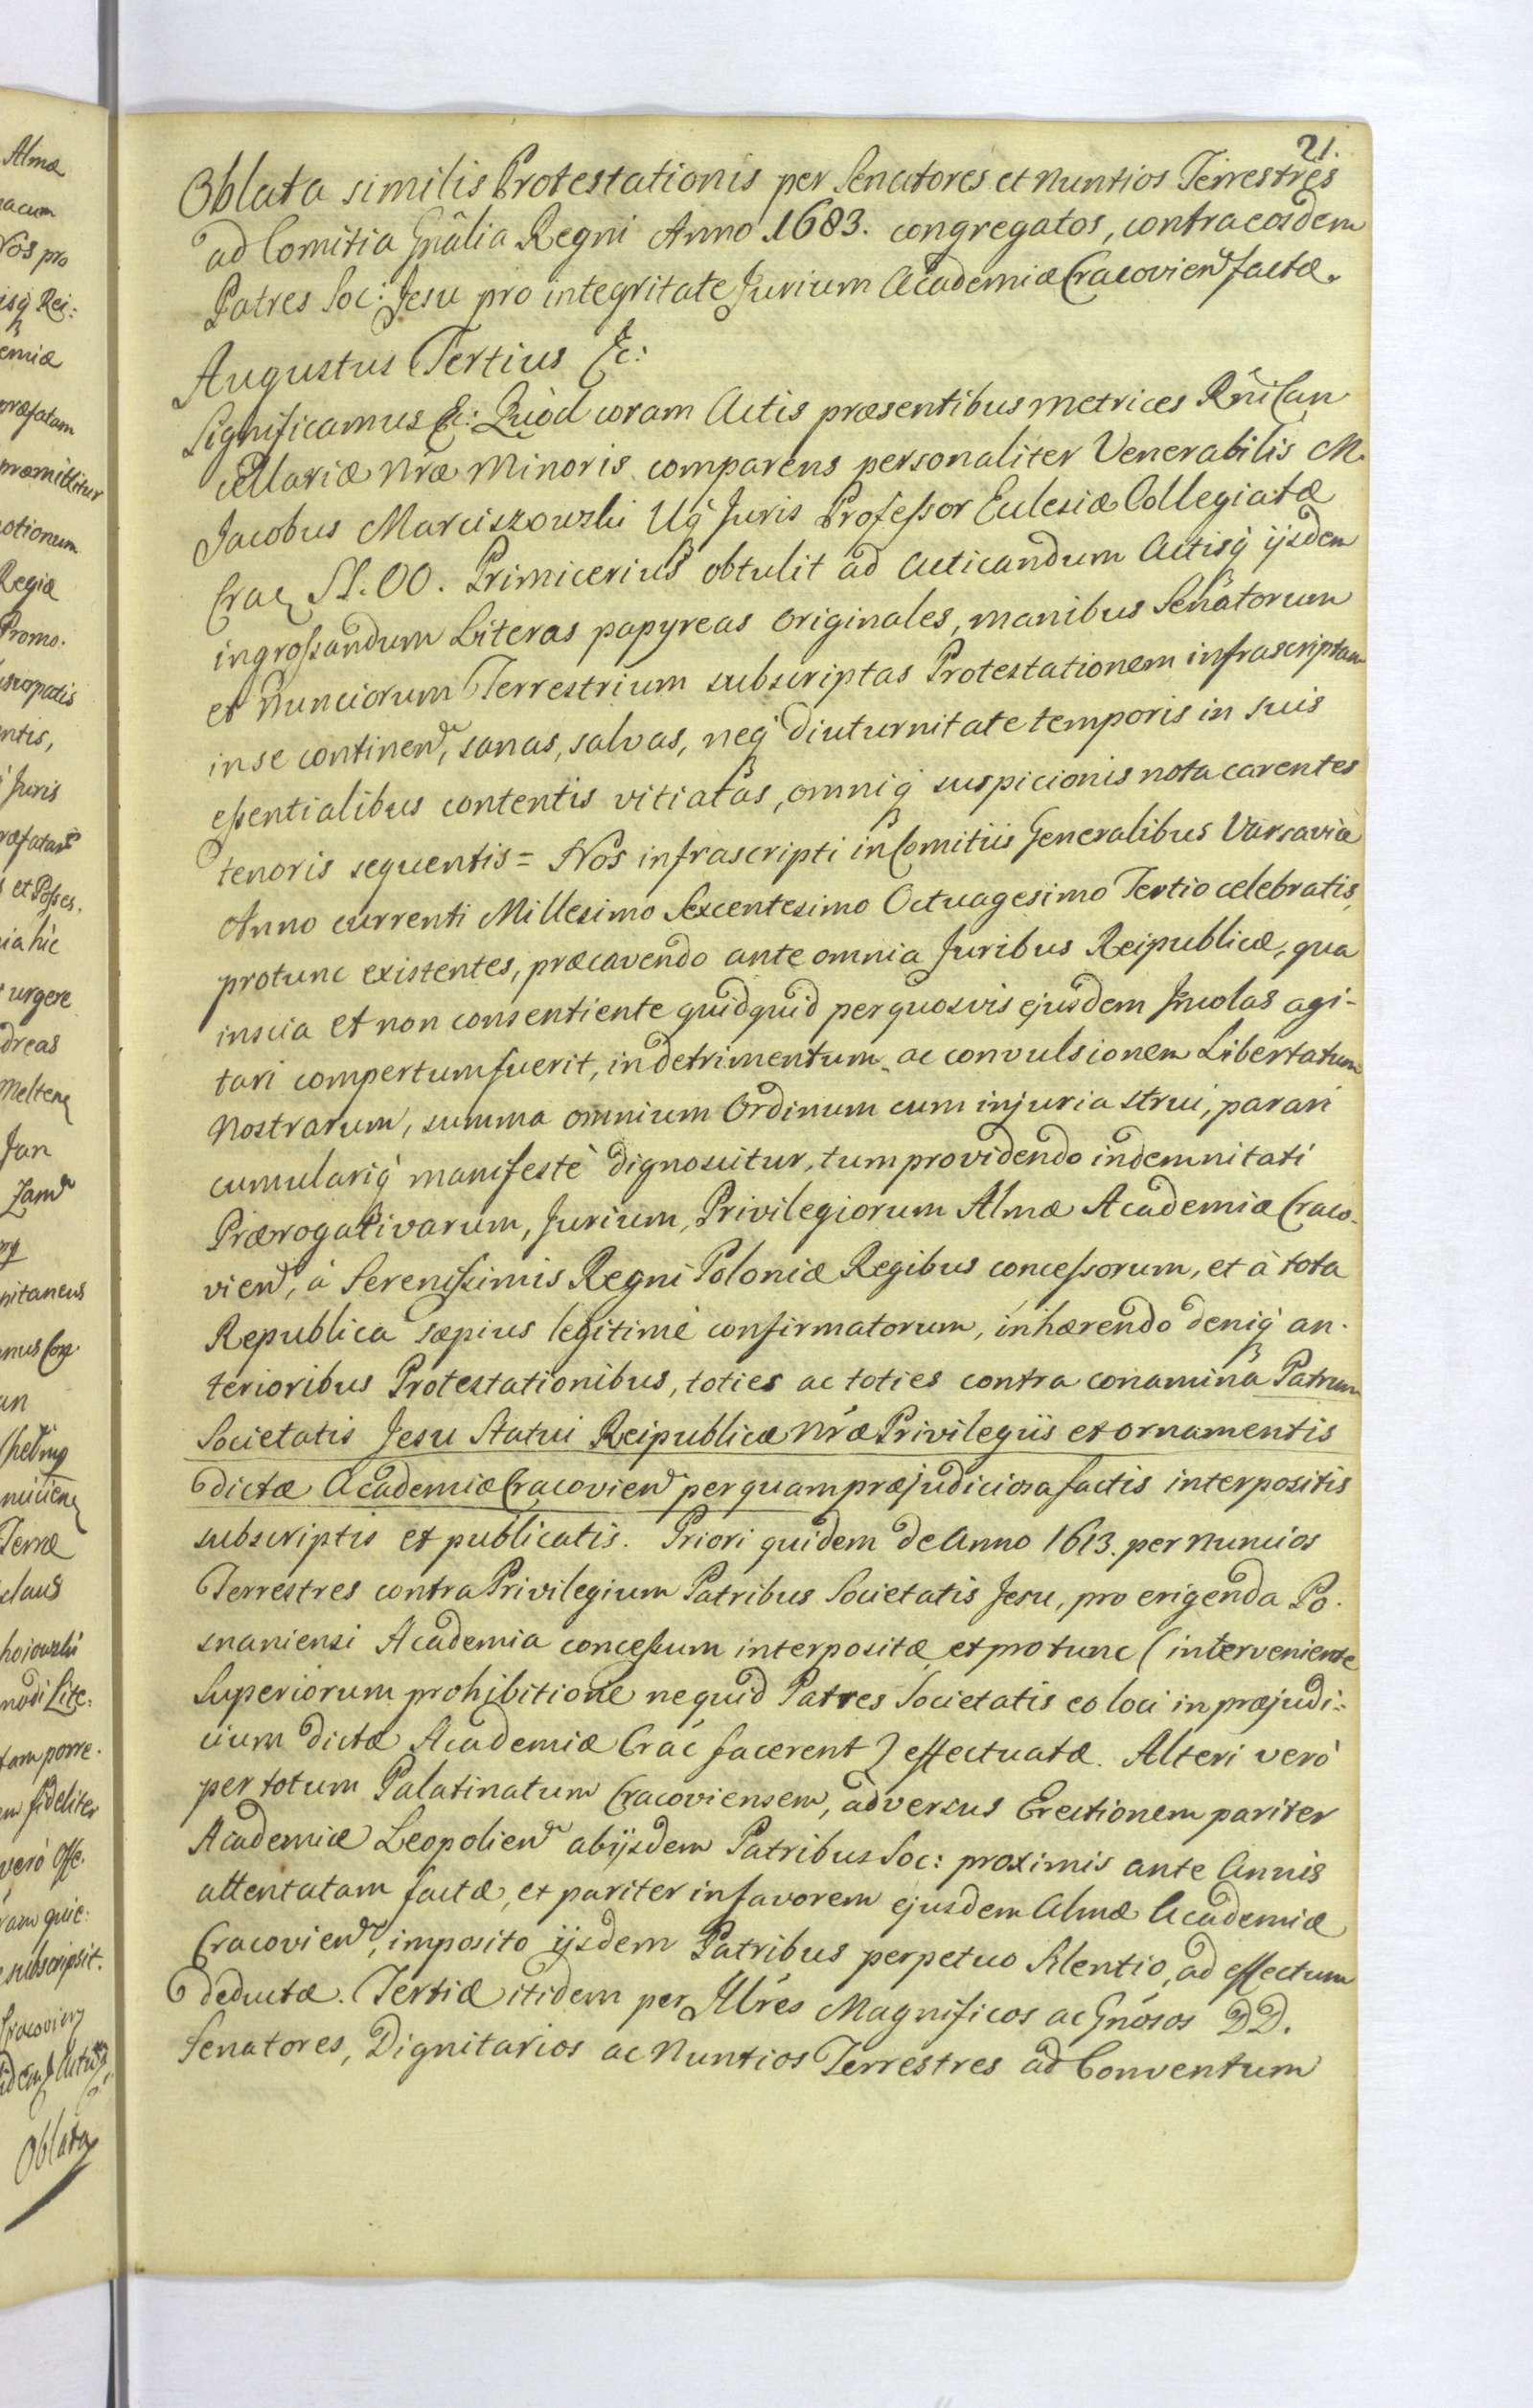 Almæ
acum
Nos pro
isq Rei:
emiæ
præfatam
præmittitur
otionum
Regiæ
Promo.
ntis,
Juris
et Posses.
ia hic
urgere
dreas
Jan
nitaneus
an
Terræ
claus
nodi Lite.
tam porre.
m fideliter
verò Offe.
am quie.
subscripsit.
Oblata
21.
Oblata similis Protestationis per Senatores et Nuntios Terrestres
ad Comitia Gnâlia Regni Anno 1683. congregatos, contra eosdem
Patres Soc: Jesu pro integritate Jurium Academiæ Cracovien factæ.
Augustus Tertius &c:
Significamus &c: Quòd coram Actis præsentibus Metrices Rñi Can
cellariæ Nræ Minoris comparens personaliter Venerabilis M.
Jacobus Marciszowski Uq Juris Professor Eclesiæ Collegiatæ
Crac SS. OO. Primicerius obtulit ad acticandum Actisq ijsdem
ingrossandum Literas papyreas originales, manibus Senatorum
et Nunciorum Terrestrium subscriptas Protestationem infrascriptam
in se continen, sanas, salvas, neq diuturnitate temporis in suis
essentialibus contentis vitiatas, omniq suspicionis nota carentes
tenoris sequentis = Nos infrascripti in Comitiis Generalibus Varsaviæ
Anno currenti Millesimo Sexcentesimo Octuagesimo Tertio celebratis,
protunc existentes, præcavendo ante omnia Juribus Reipublicæ, qua
inscia et non consentiente quidquid per quosvis ejusdem Incolas agi-
tari compertum fuerit, in detrimentum ac convulsionem Libertatum
Nostrarum, summa omnium Ordinum cum injuria strui, parari
cumulariq manifestè dignoscitur, tum providendo indemnitati
Prærogativarum, Jurium, Privilegiorum Almæ Academiæ Craco-
vien, à Serenissimis Regni Poloniæ Regibus concessorum, et à tota
Republica sæpius legitimè confirmatorum, inhærendo deniq an-
terioribus Protestationibus, toties ac toties contra conamina Patrum
Societatis Jesu Statui Reipublicæ Nræ Privilegiis et ornamentis
dictæ Academiæ Cracovien perquam præjudiciosa factis interpositis
subscriptis et publicatis. Priori quidem de Anno 1613. per Nuncios
Terrestres contra Privilegium Patribus Societatis Jesu, pro erigenda Po.
snaniensi Academia concessum interpositæ et protunc (interveniente
Superiorum prohibitione ne quid Patres Societatis eo loci in præjudi-
cium dictæ Academiæ Crac facerent) effectuatæ. Alteri verò
per totum Palatinatum Cracoviensem, adversus Erectionem pariter
Academiæ Leopolien ab ijsdem Patribus Soc: proximis ante Annis
attentatam factæ, et pariter in favorem ejusdem Almæ Academiæ
Cracovien, imposito ijsdem Patribus perpetuo Silentio, ad effectum
deductæ. Tertiæ itidem per Illres Magnificos ac Gnosos DD.
Senatores, Dignitarios ac Nuntios Terrestres ad Conventum